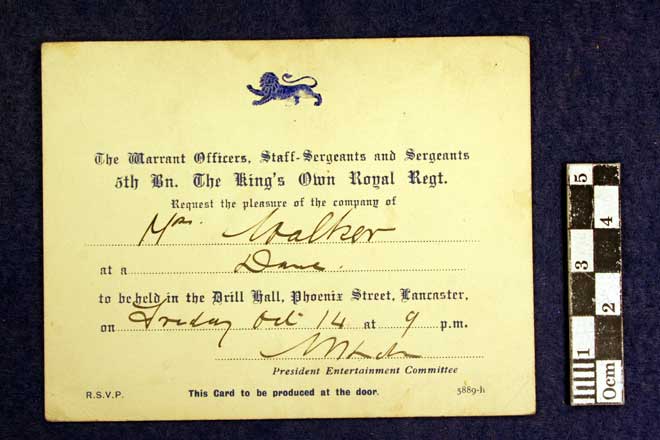 The Warrant Officers, Staff-Sergeants and Sergeants
5th Bn. The King's Own Royal Regt.
Request the pleasure of the company of
Walker
at a Dance.
to be held in the Drill Hall, Phoenix Street, Lancaster,
on Friday Oct 14 at 9 p.m.
President Entertainment Committee
R.S.V.P. This Card to be produced at the door. 5889-h
5
4
3
2
1
0cm